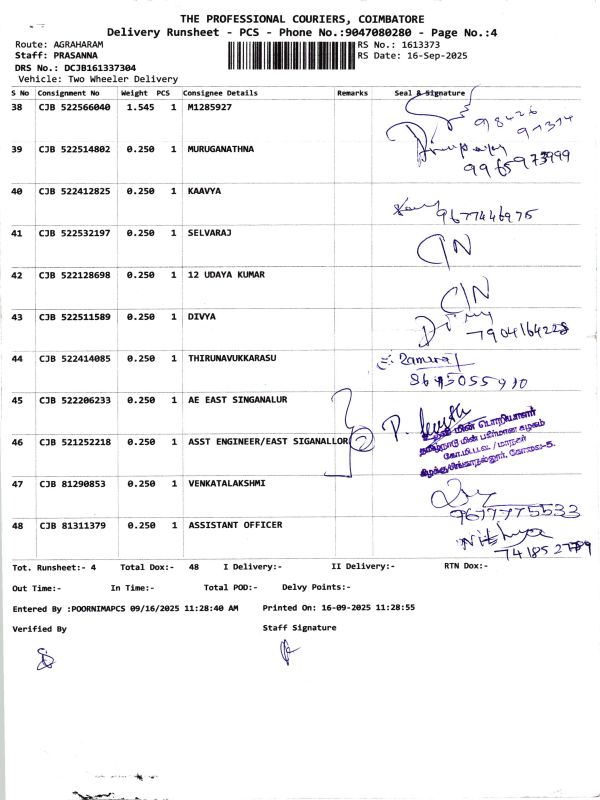 THE PROFESSIONAL COURIERS, COIMBATORE
Delivery Runsheet - PCS - Phone No.:9047080280 - Page No.:4
Route: AGRAHARAM
RS No.: 1613373
Staff: PRASANNA
RS Date: 16-Sep-2025
DRS No.: DCJB161337304
Vehicle: Two Wheeler Delivery
S No Consignment No Weight PCS Consignee Details Remarks Seal & Signature
38 CJB 522566040 1.545 1 M1285927
98426
91314
39 CJB 522514802 0.250 1 MURUGANATHNA
9965973999
40 CJB 522412825 0.250 1 KAAVYA
9677446975
41 CJB 522532197 0.250 1 SELVARAJ
C/N
42 CJB 522128698 0.250 1 12 UDAYA KUMAR
C/N
43 CJB 522511589 0.250 1 DIVYA
7904164228
44 CJB 522414085 0.250 1 THIRUNAVUKKARASU
45 CJB 522206233 0.250 1 AE EAST SINGANALUR
46 CJB 521252218 0.250 1 ASST ENGINEER/EAST SIGANALLOR 2
உதவி மின் பொறியாளர்
தமிழ்நாடு மின் பகிர்மான கழகம்
47 CJB 81290853 0.250 1 VENKATALAKSHMI
9677775533
48 CJB 81311379 0.250 1 ASSISTANT OFFICER
Nithya
Tot. Runsheet:- 4 Total Dox:- 48 I Delivery:- II Delivery:- RTN Dox:-
Out Time:- In Time:- Total POD:- Delvy Points:-
Entered By :POORNIMAPCS 09/16/2025 11:28:40 AM Printed On: 16-09-2025 11:28:55
Verified By Staff Signature